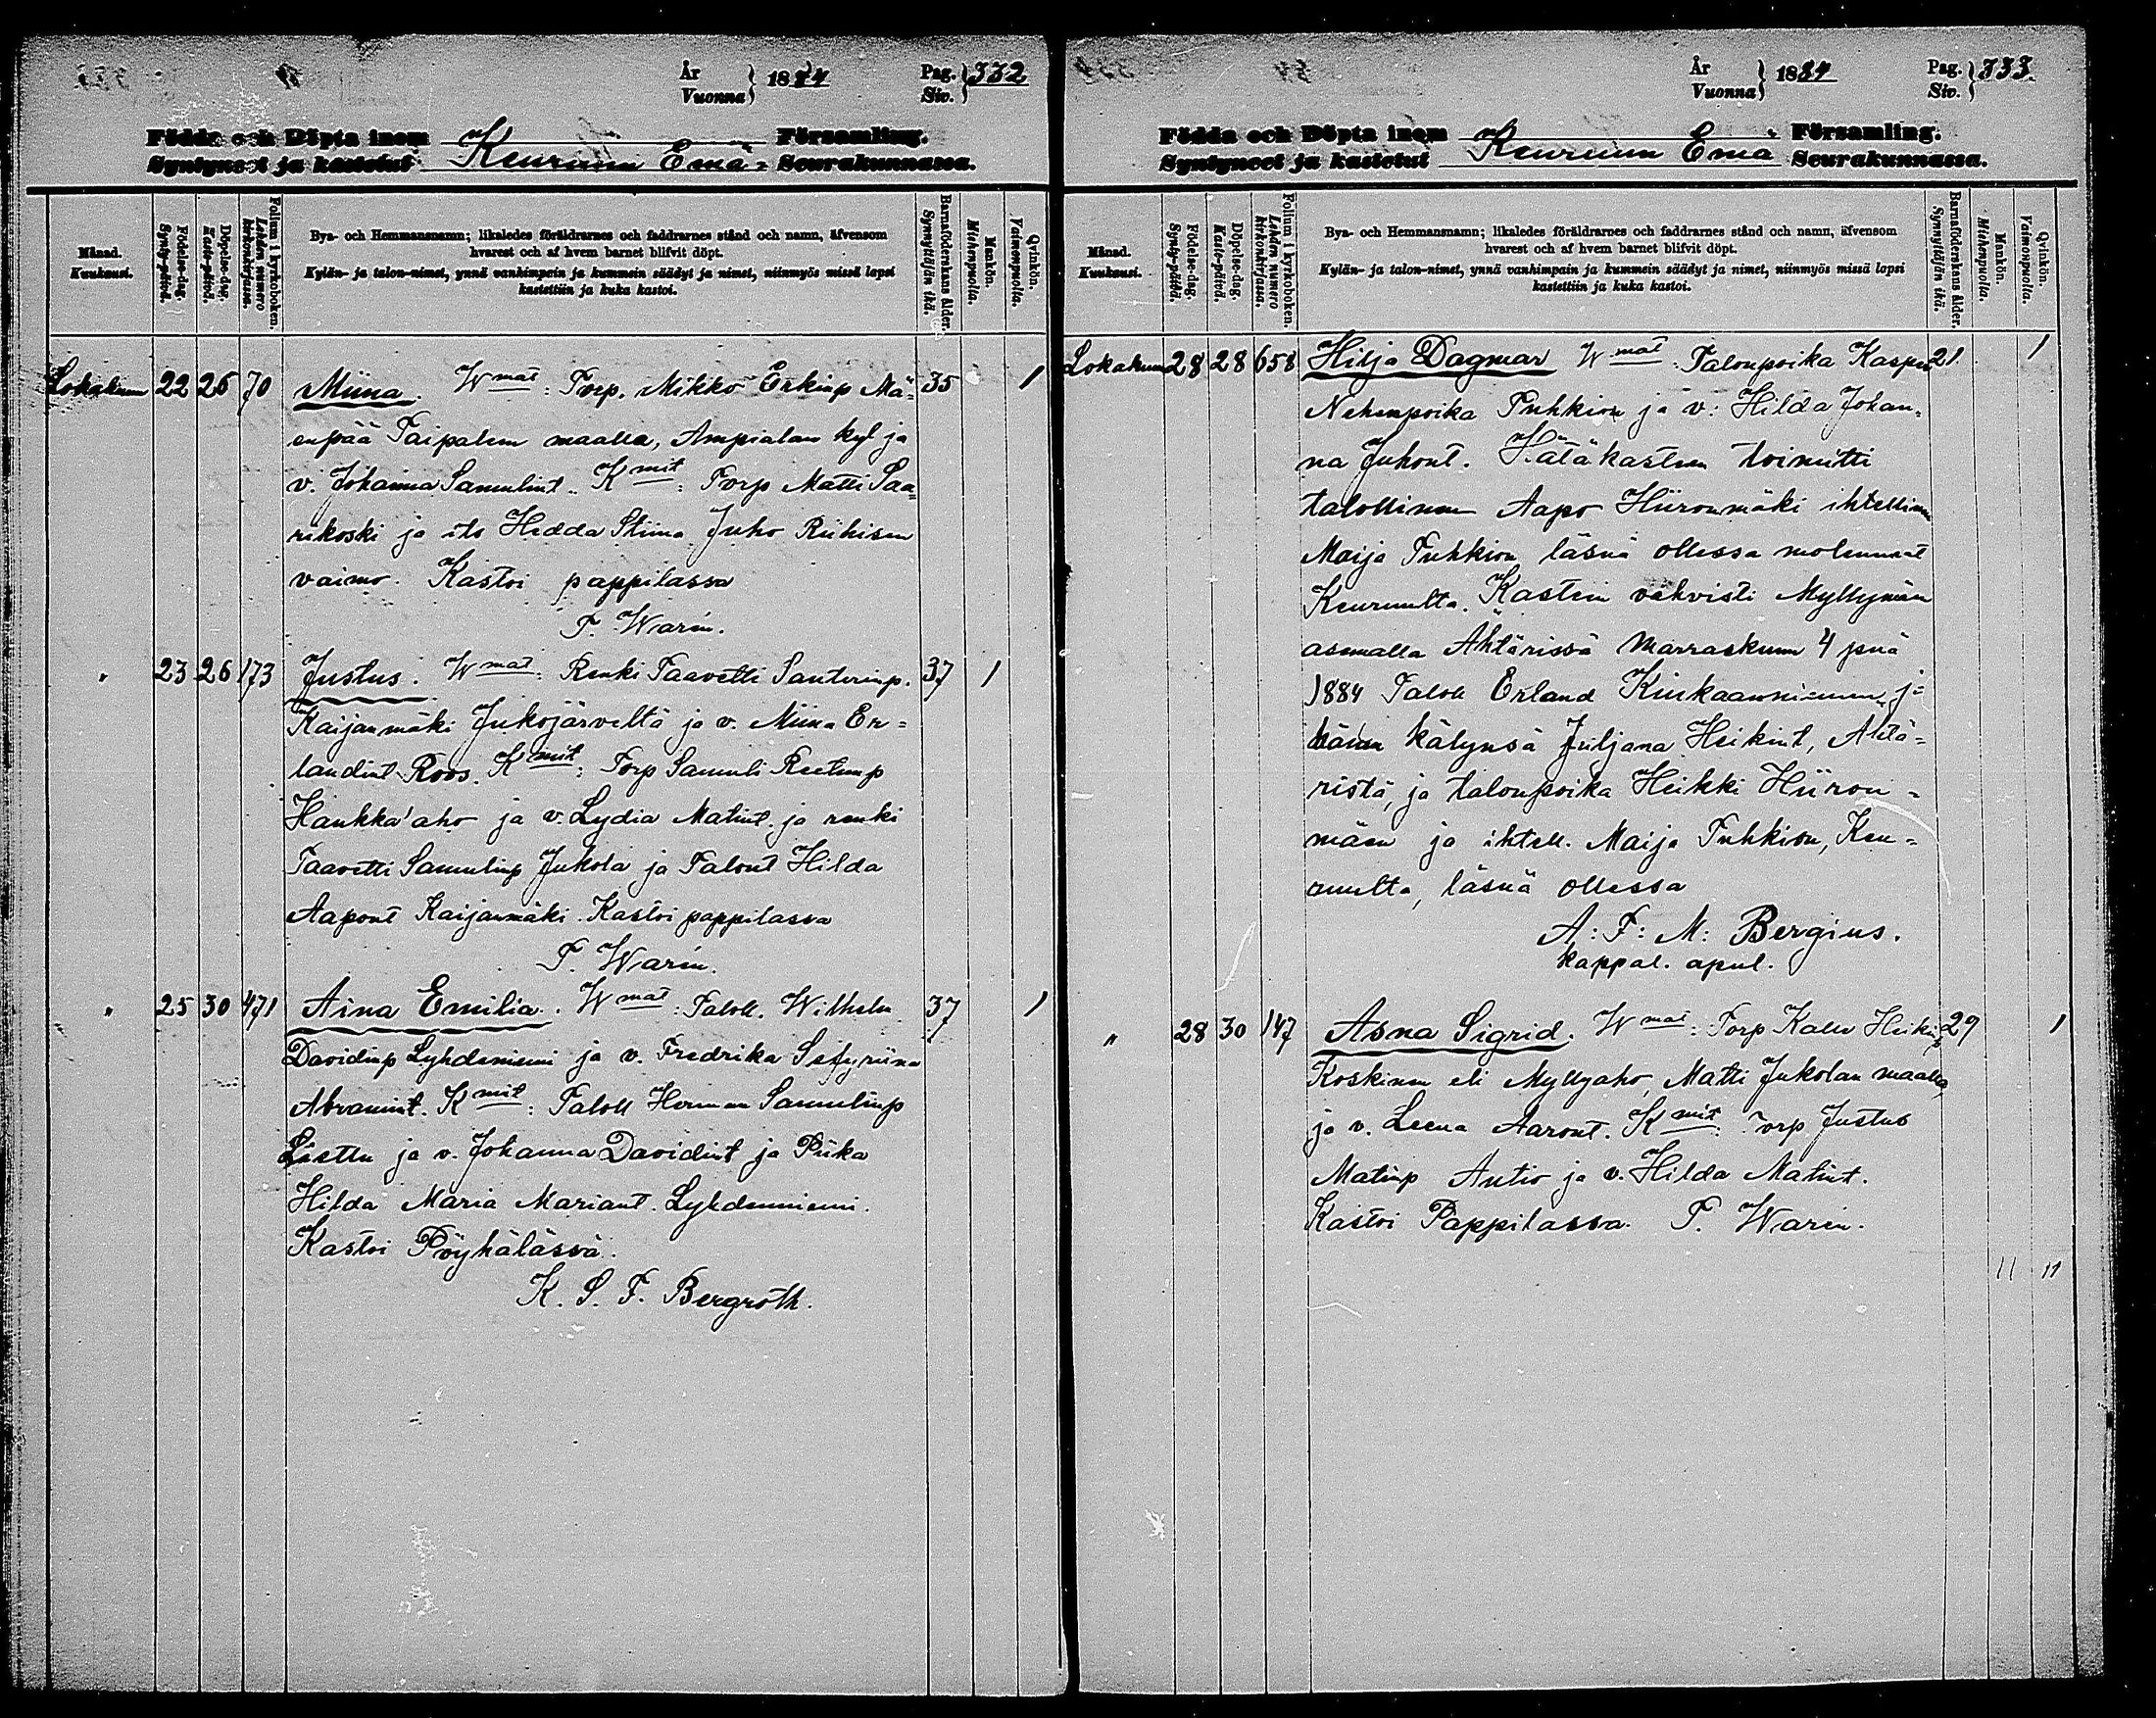 År
Vuonna } 1884 Pag.
Siv. } 332
Födda och Döpta inom Församling.
Syntyneet ja kastetut Keuruun Emä- Seurakunnassa.
Månad.
Kuukausi.
Födelse-dag.
Synty-päivä.
Döpelse-dag.
Kaste-päivä.
Folium i kyrkoboken.
Lehden numero
kirkonkirjassa.
Bya- och Hemmansnamn; likaledes föräldrarnes och faddrarnes stånd och namn, äfvensom
hvarest och af hvem barnet blifvit döpt.
Kylän- ja talon-nimet, ynnä vanhimpain ja kummein säädyt ja nimet, niinmyös missä lapsi
kastettiin ja kuka kastoi.
Barnaföderskans ålder.
Synnyttäjän ikä.
Mankön.
Miehenpuolia.
Qvinkön.
Vaimonpuolia.
Lokakuun 22 26 70 Miina. Wmat: Torp. Mikko Erkinp Mä= 35 1
enpää Taipaleen maalla, Ampialan kyl ja
v. Johanna Samulint. Kmit: Torp Matti Saa=
rikoski ja its Hedda Stiina Juho Riihisen
vaimo. Kastoi pappilassa
T. Warén.
" 23 26 173 Justus. Wmat: Renki Taavetti Santerinp. 37 1
Kaijanmäki Jukojärveltä ja v. Miina Er=
landint Roos. Kmit: Torp Samuli Reetunp
Haukka'aho ja v. Lydia Matint. ja renki
Taavetti Samulinp Jukola ja Talont Hilda
Aapont Kaijanmäki. Kastoi pappilassa
T. Warén.
" 25 30 471 Aina Emilia. Wmat: Taloll. Wilhelm 37 1
Davidinp Lyhdenniemi ja v. Fredrika Sefyriina
Abramint. Kmit: Taloll Herman Samulinp
Liettu ja v. Johanna Davidint ja Piika
Hilda Maria Mariant. Lyhdenniemi.
Kastoi Pöyhälässä.
K. S. F. Bergroth.
År
Vuonna } 1884 Pag.
Siv. } 333
Födda och Döpta inom Församling.
Syntyneet ja kastetut Keuruun Emä- Seurakunnassa.
Månad.
Kuukausi.
Födelse-dag.
Synty-päivä.
Döpelse-dag.
Kaste-päivä.
Folium i kyrkoboken.
Lehden numero
kirkonkirjassa.
Bya- och Hemmansnamn; likaledes föräldrarnes och faddrarnes stånd och namn, äfvensom
hvarest och af hvem barnet blifvit döpt.
Kylän- ja talon-nimet, ynnä vanhimpain ja kummein säädyt ja nimet, niinmyös missä lapsi
kastettiin ja kuka kastoi.
Barnaföderskans ålder.
Synnyttäjän ikä.
Mankön.
Miehenpuolia.
Qvinkön.
Vaimonpuolia.
Lokakuun 28 28 658 Hilja Dagmar Wmat: Talonpoika Kasper 21 1
Nehenpoika Tuhkion ja v: Hilda Johan=
na Juhont. Hätäkasteen toimitti
talollinen Aapo Hiironmäki ihtellinen
Maija Tuhkion läsnä ollessa molemmat
Keuruulta. Kasteen vahvisti Myllymäen
asemalla Ähtärissä Marraskuun 4 pnä
1884 Taloll Erland Kiukaanniemen ja
hänen kälynsä Juljana Heikint, Ähtä=
ristä, ja talonpoika Heikki Hiiron=
mäen ja ihtell. Maija Tuhkion, Keu=
ruulta, läsnä ollessa
A: F: M: Bergius.
kappal. apul.
" 28 30 147 Asna Sigrid. Wmat: Torp Kalle Heikinp 29 1
Koskinen eli Myllyaho, Matti Jukolan maalla,
ja v. Leena Aaront. Kmit: Torp Justus
Matinp Autio ja v. Hilda Matint.
Kastoi Pappilassa. T. Warén.
11 11